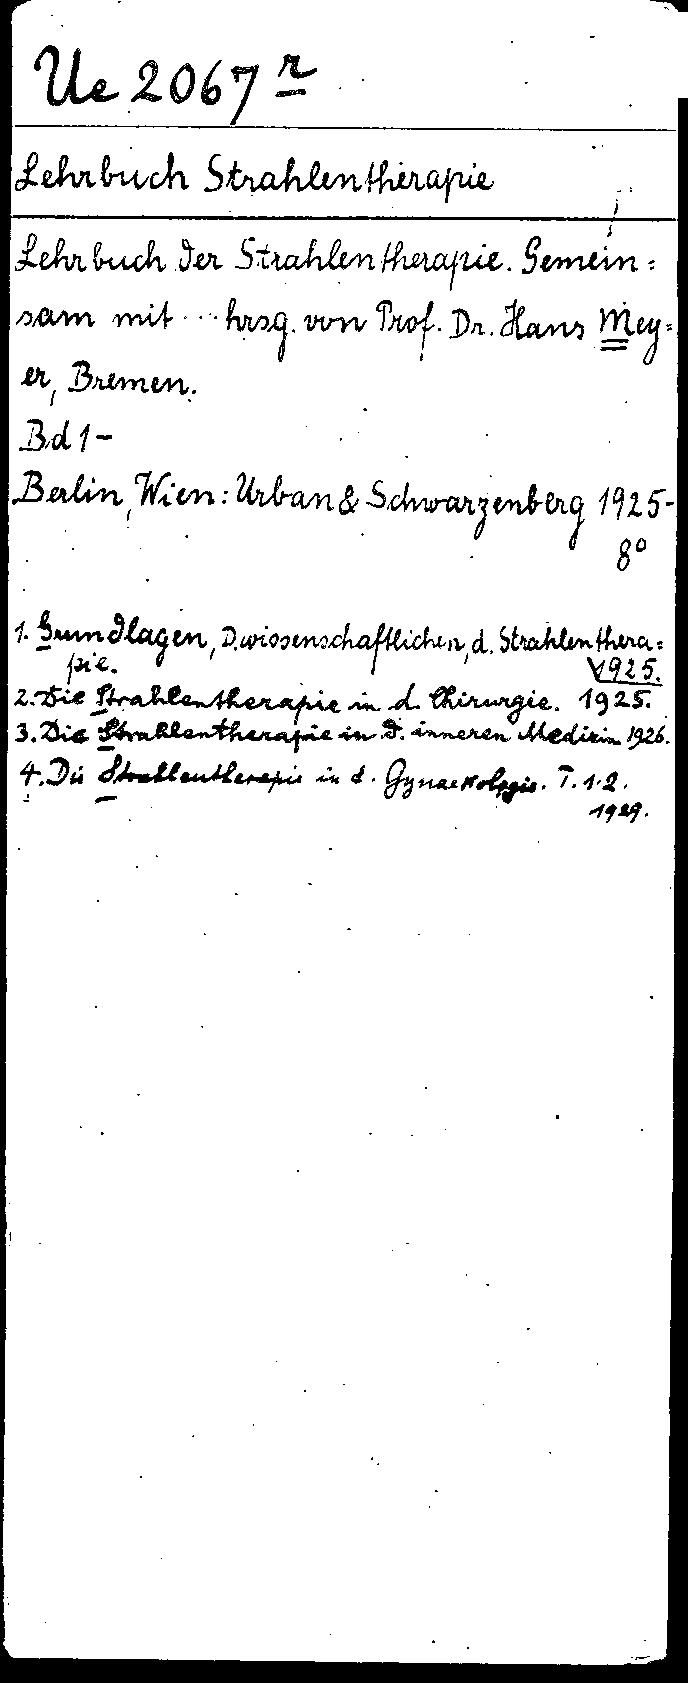 Ue 2067 r
Lehrbuch Strahlentherapie
Lehrbuch der Strahlentherapie. Gemein=
sam mit ... hrsg. von Prof. Dr. Hans Mey=
er, Bremen.
Bd 1-
Berlin, Wien: Urban & Schwarzenberg 1925-
8°
1. Grundlagen, D. wissenschaftlichen, d. Strahlenthera=
pie. 1925.
2. Die Strahlentherapie in d. Chirurgie. 1925.
3. Die Strahlentherapie in d. inneren Medizin 1926.
4. Die Strahlentherapie in d. Gynaekologie. T. 1.2.
1929.